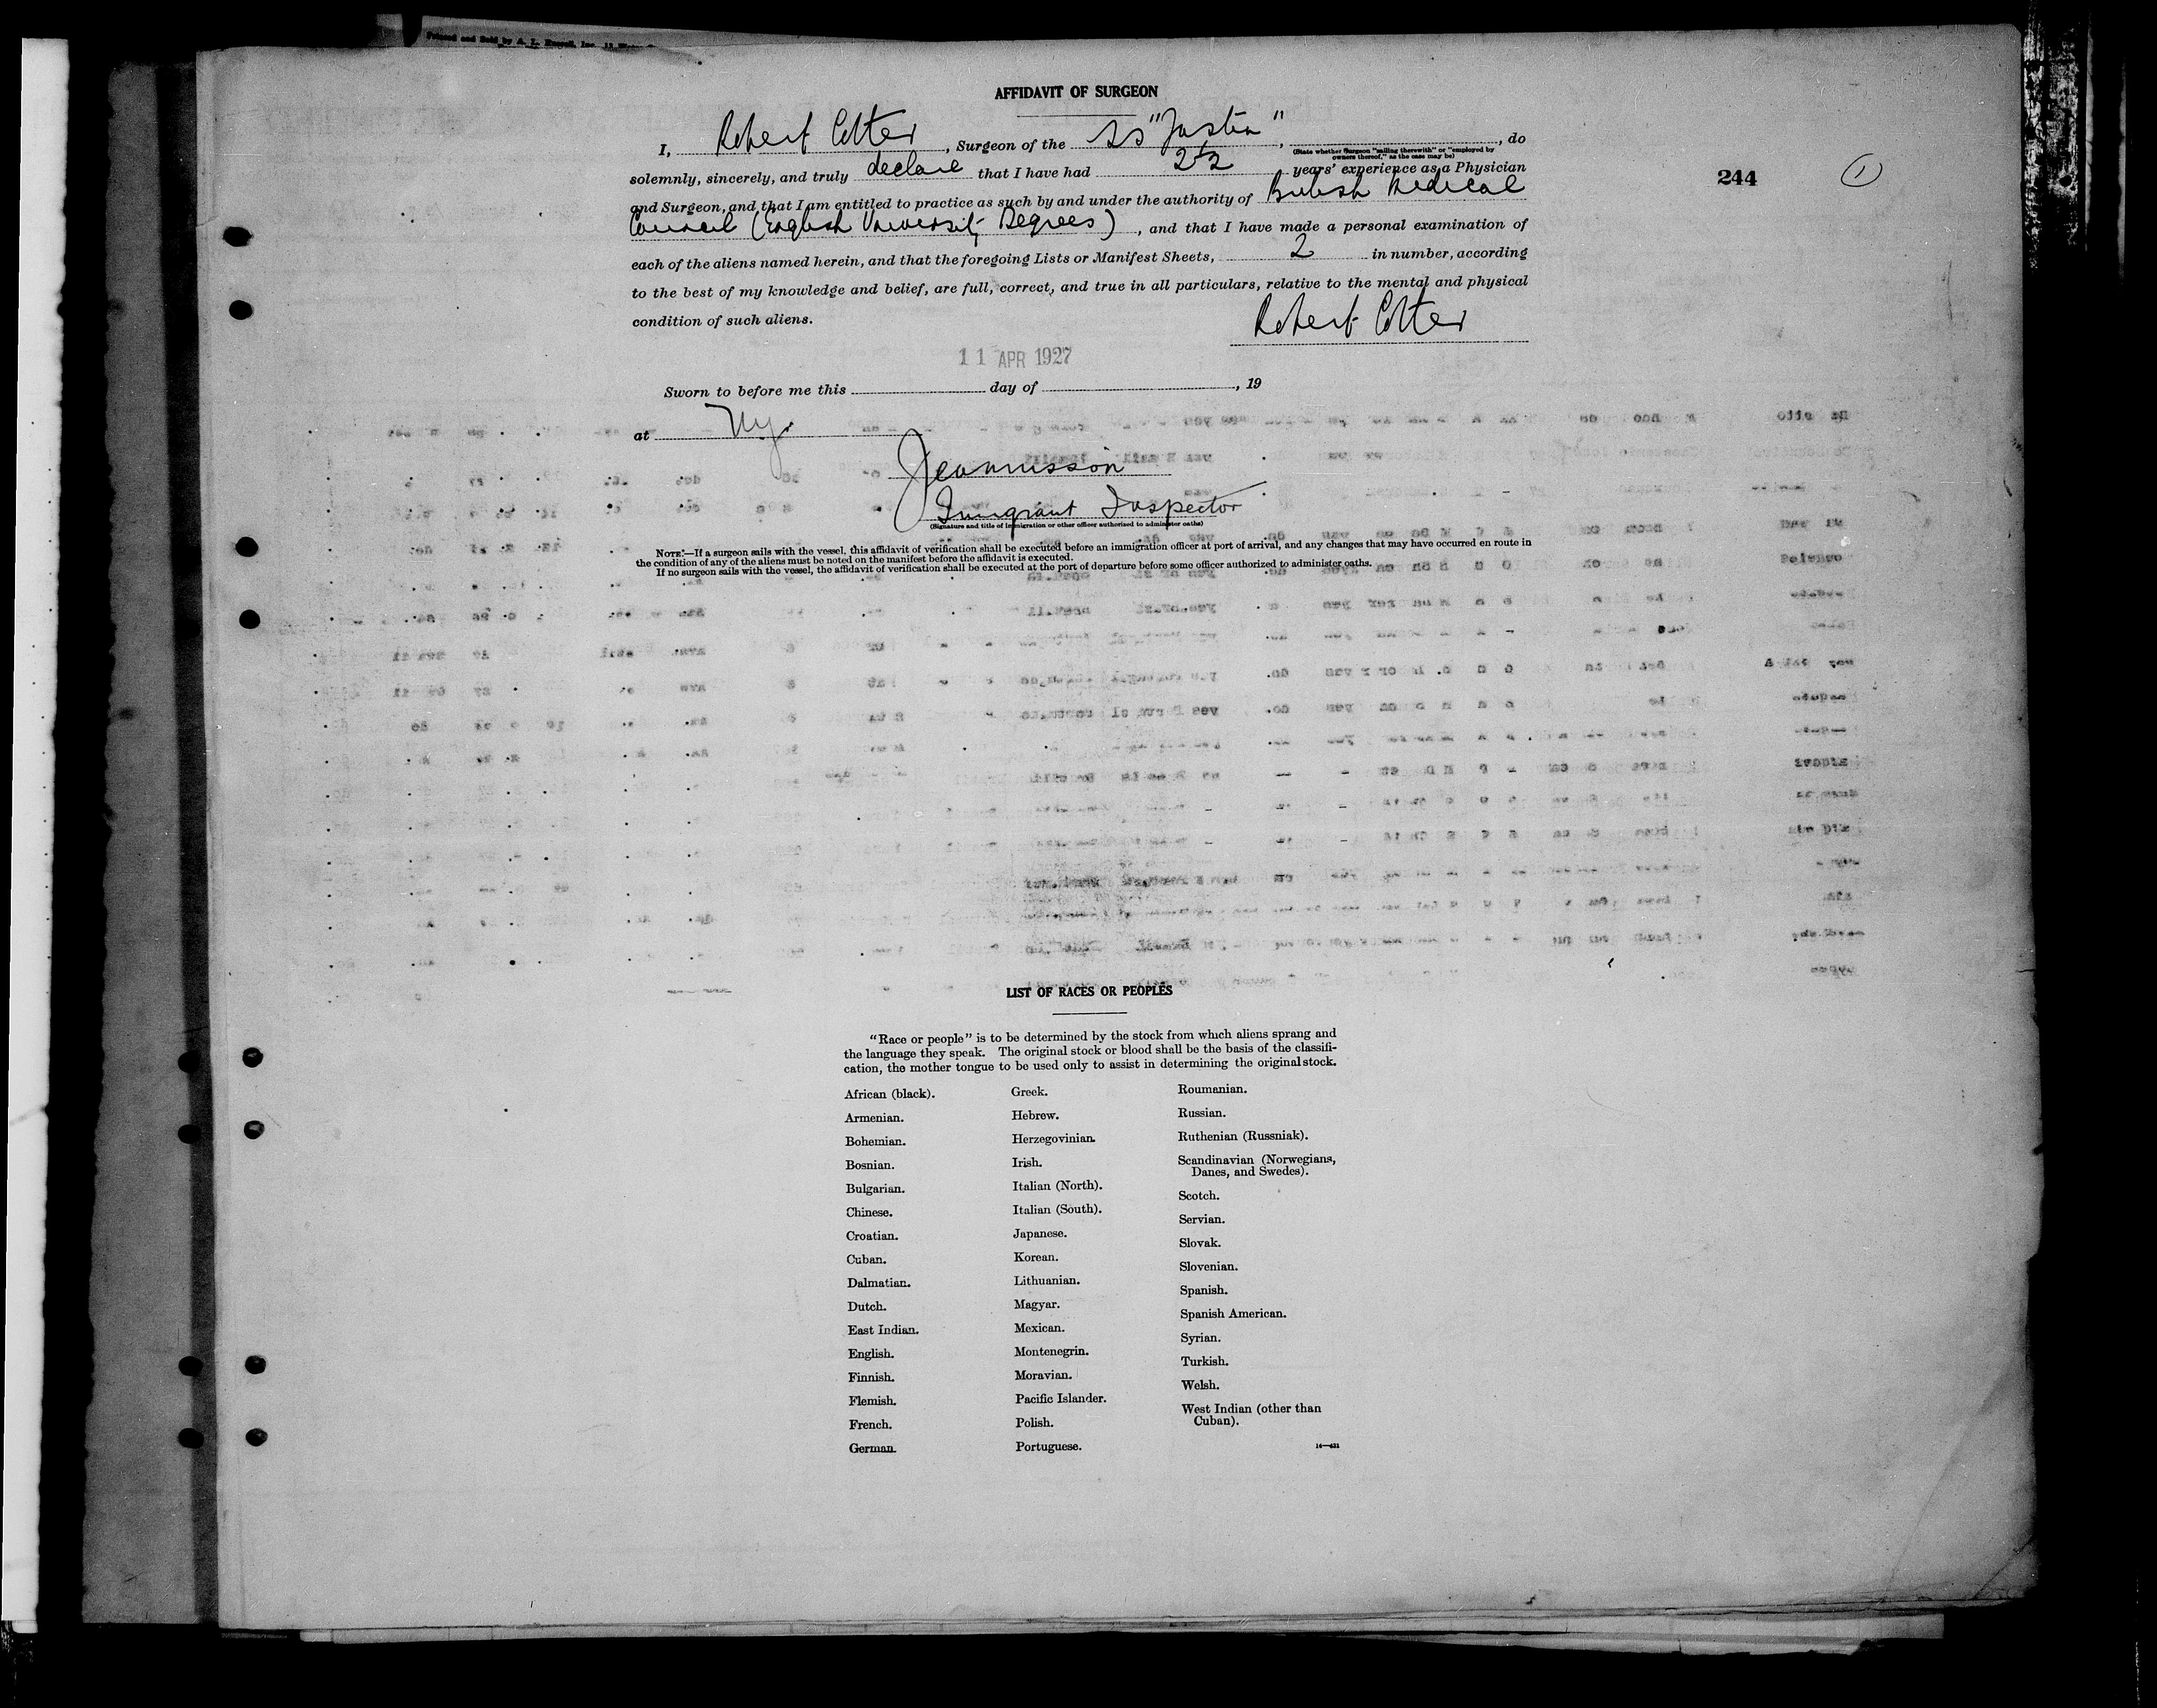 Printed and Sold by A. L. Russell, Inc.
AFFIDAVIT OF SURGEON
I, Robert Cotter, Surgeon of the SS "Justin", , do
(State whether Surgeon "sailing therewith" or "employed by
owners thereof," as the case may be)
solemnly, sincerely, and truly declare that I have had 2½ years' experience as a Physician
244 1
and Surgeon, and that I am entitled to practice as such by and under the authority of British Medical
Council (English University Degrees), and that I have made a personal examination of
each of the aliens named herein, and that the foregoing Lists or Manifest Sheets, 2 in number, according
to the best of my knowledge and belief, are full, correct, and true in all particulars, relative to the mental and physical
condition of such aliens.
Robert Cotter
11 APR 1927
Sworn to before me this day of , 19
at Ny.
Immigrant Inspector
(Signature and title of immigration or other officer authorized to administer oaths)
NOTE.—If a surgeon sails with the vessel, this affidavit of verification shall be executed before an immigration officer at port of arrival, and any changes that may have occurred en route in
the condition of any of the aliens must be noted on the manifest before the affidavit is executed.
If no surgeon sails with the vessel, the affidavit of verification shall be executed at the port of departure before some officer authorized to administer oaths.
LIST OF RACES OR PEOPLES
"Race or people" is to be determined by the stock from which aliens sprang and
the language they speak. The original stock or blood shall be the basis of the classifi-
cation, the mother tongue to be used only to assist in determining the original stock.
African (black).
Armenian.
Bohemian.
Bosnian.
Bulgarian.
Chinese.
Croatian.
Cuban.
Dalmatian.
Dutch.
East Indian.
English.
Finnish.
Flemish.
French.
German.
Greek.
Hebrew.
Herzegovinian.
Irish.
Italian (North).
Italian (South).
Japanese.
Korean.
Lithuanian.
Magyar.
Mexican.
Montenegrin.
Moravian.
Pacific Islander.
Polish.
Portuguese.
Roumanian.
Russian.
Ruthenian (Russniak).
Scandinavian (Norwegians,
Danes, and Swedes).
Scotch.
Servian.
Slovak.
Slovenian.
Spanish.
Spanish American.
Syrian.
Turkish.
Welsh.
West Indian (other than
Cuban).